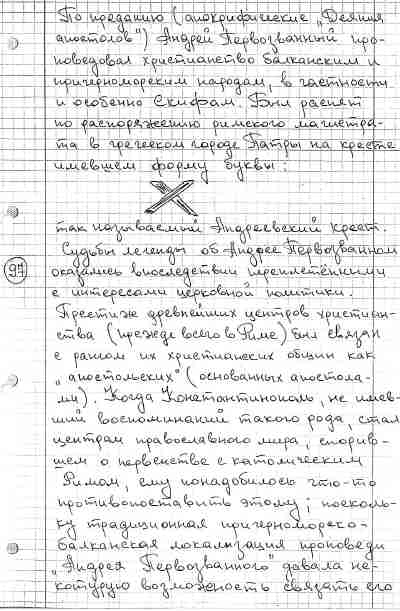 По преданию (апокрифические „Деяния
апостолов") Андрей Первозванный про-
поведовал христианство балканским и
причерноморским народам, в частности
и особенно Скифам. Был распят
по распоряжению римского магистра-
та в греческом городе Патры на кресте
имевшем форму буквы:
X
так называемый Андреевский Крест.
Судьбы легенды об Андрее Первозванном
97
оказались впоследствии переплетёнными
с интересами церковной политики.
Престиж древнейших центров христиан-
ства (прежде всего в Риме) был связан
с рангом их христианских общин как
„апостольских" (основанных апостола-
ми). Когда Константинополь, не имев-
ший воспоминаний такого рода, стал
центром православного мира, спорив-
шем о первенстве с католическим
Римом, ему понадобилось что-то
противопоставить этому; посколь-
ку традиционная причерноморско-
балканская локализация проповеди
„Андрея Первозванного" давала не-
которую возможность связать его